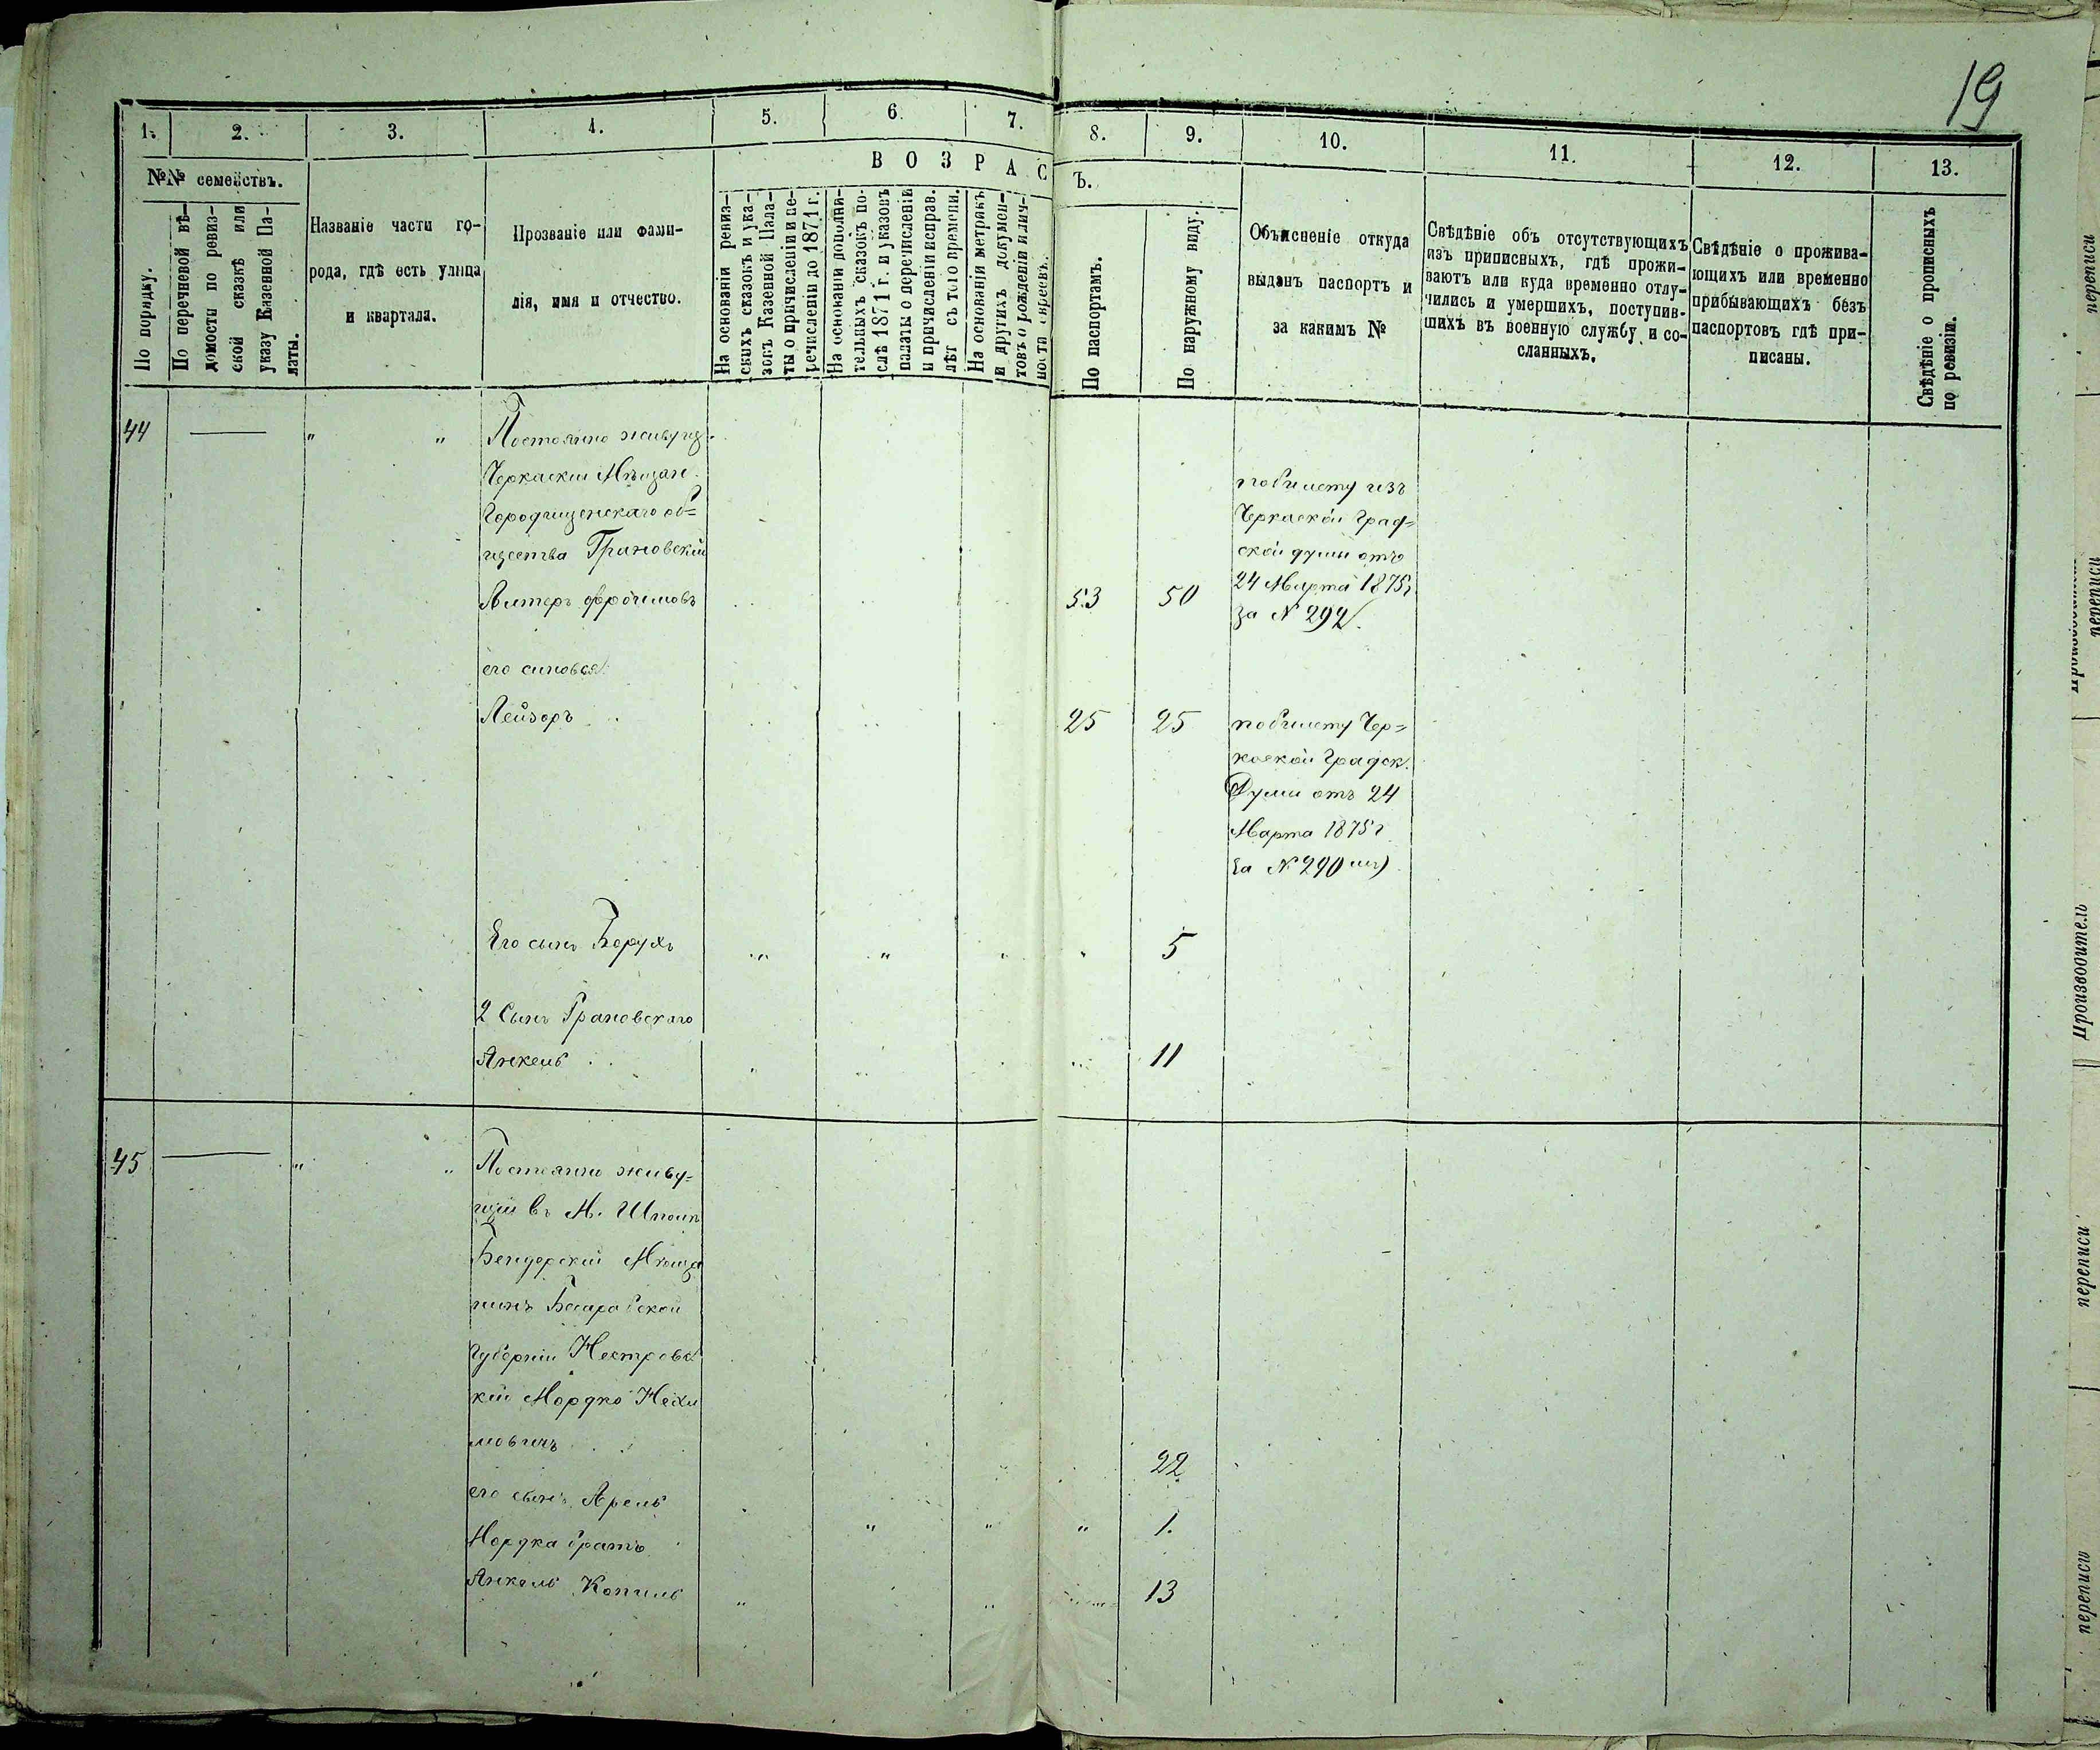 19
1.
2.
3.
4.
5.
6.
7.
8.
9.
10.
11.
12.
13.
№№ семействъ.
В О З Р А С
Ъ.
По порядку.
По перечневой вѣ-
домости по ревиз-
ской сказкѣ или
указу Казенной Па-
латы.
Названіе части го-
рода, гдѣ есть улица
и квартала.
Прозваніе или фами-
лія, имя и отчество.
На основаніи ревиз-
скихъ сказокъ и ука-
зокъ Казенной Пала-
ты о причисленіи и пе-
речисленіи до 1871 г.
На основаніи дополни-
тельныхъ сказокъ по-
слѣ 1871 г. и указовъ
палаты о перечисленіи
и причисленіи исправ.
лѣт съ того времени.
На основаніи метрикъ
и другихъ докумен-
товъ о рожденіи и лич-
ности евреевъ.
По паспортамъ.
По наружному виду.
Объясненіе откуда
выданъ паспортъ и
за какимъ №
Свѣдѣніе объ отсутствующихъ
изъ приписныхъ, гдѣ прожи-
ваютъ или куда временно отлу-
чились и умершихъ, поступив-
шихъ въ военную службу и со-
сланныхъ.
Свѣдѣніе о прожива-
ющихъ или временно
прибывающихъ безъ
паспортовъ гдѣ при-
писаны.
Свѣдѣніе о прописныхъ
по ревизіи.
44
Постоянно живущ.
Черкаскии Мѣщане
Городищенскаго об=
щества Грановскій
Алтеръ Фроимовъ
53
50
по билету изъ
Черкаской Град=
ской думы отъ
24 Марта 1875 г.
за № 292.
его синовья
Лейзоръ
25
25
по билету Чер=
каской Градск.
Думы отъ 24
Марта 1875 г
за № 290
Его сынъ Борухъ
5
2 Сынъ Грановскаго
Янкель
11
45
Постоянно живу=
щій въ М. Шполѣ
Бендерскій Мѣща
нинъ Бесарабской
Губерніи Нестровс
кій Мордко Нехи
мовичъ
22
его сынъ Арель
1.
Мордка братъ
Янкель Копиль
13
переписи
переписи
Производитель
переписи
переписи